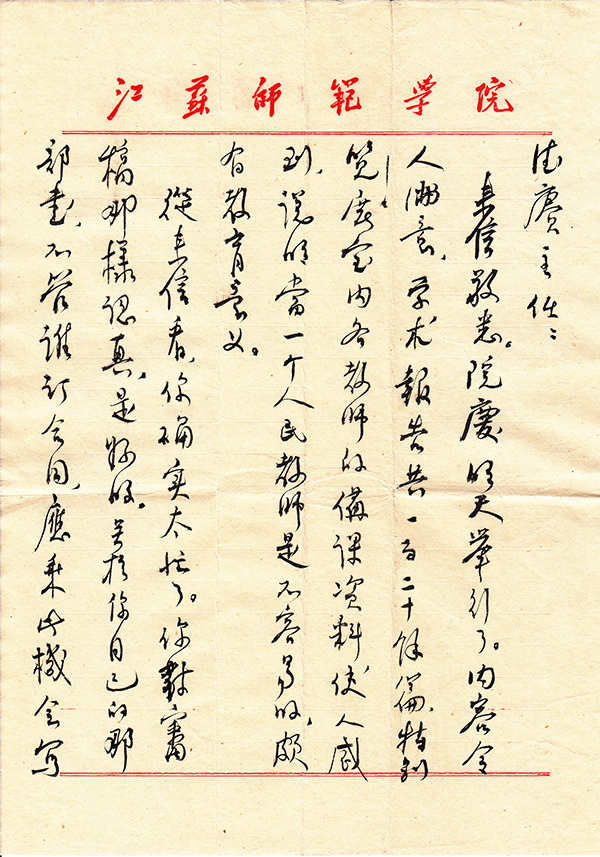 江苏师範学院
德赓主任：
来信敬悉。院慶明天举行了。内容令
人满意，学术報告共一百二十餘篇，特别
览展室内各教师的備课资料使人感
到，说明当一个人民教师是不容易的，颇
有教育意义。
從来信看，你確实太忙了。你對審
稿那樣認真，是好的。至於你自己的那
部書，不管誰訂合同，應乘此機会写